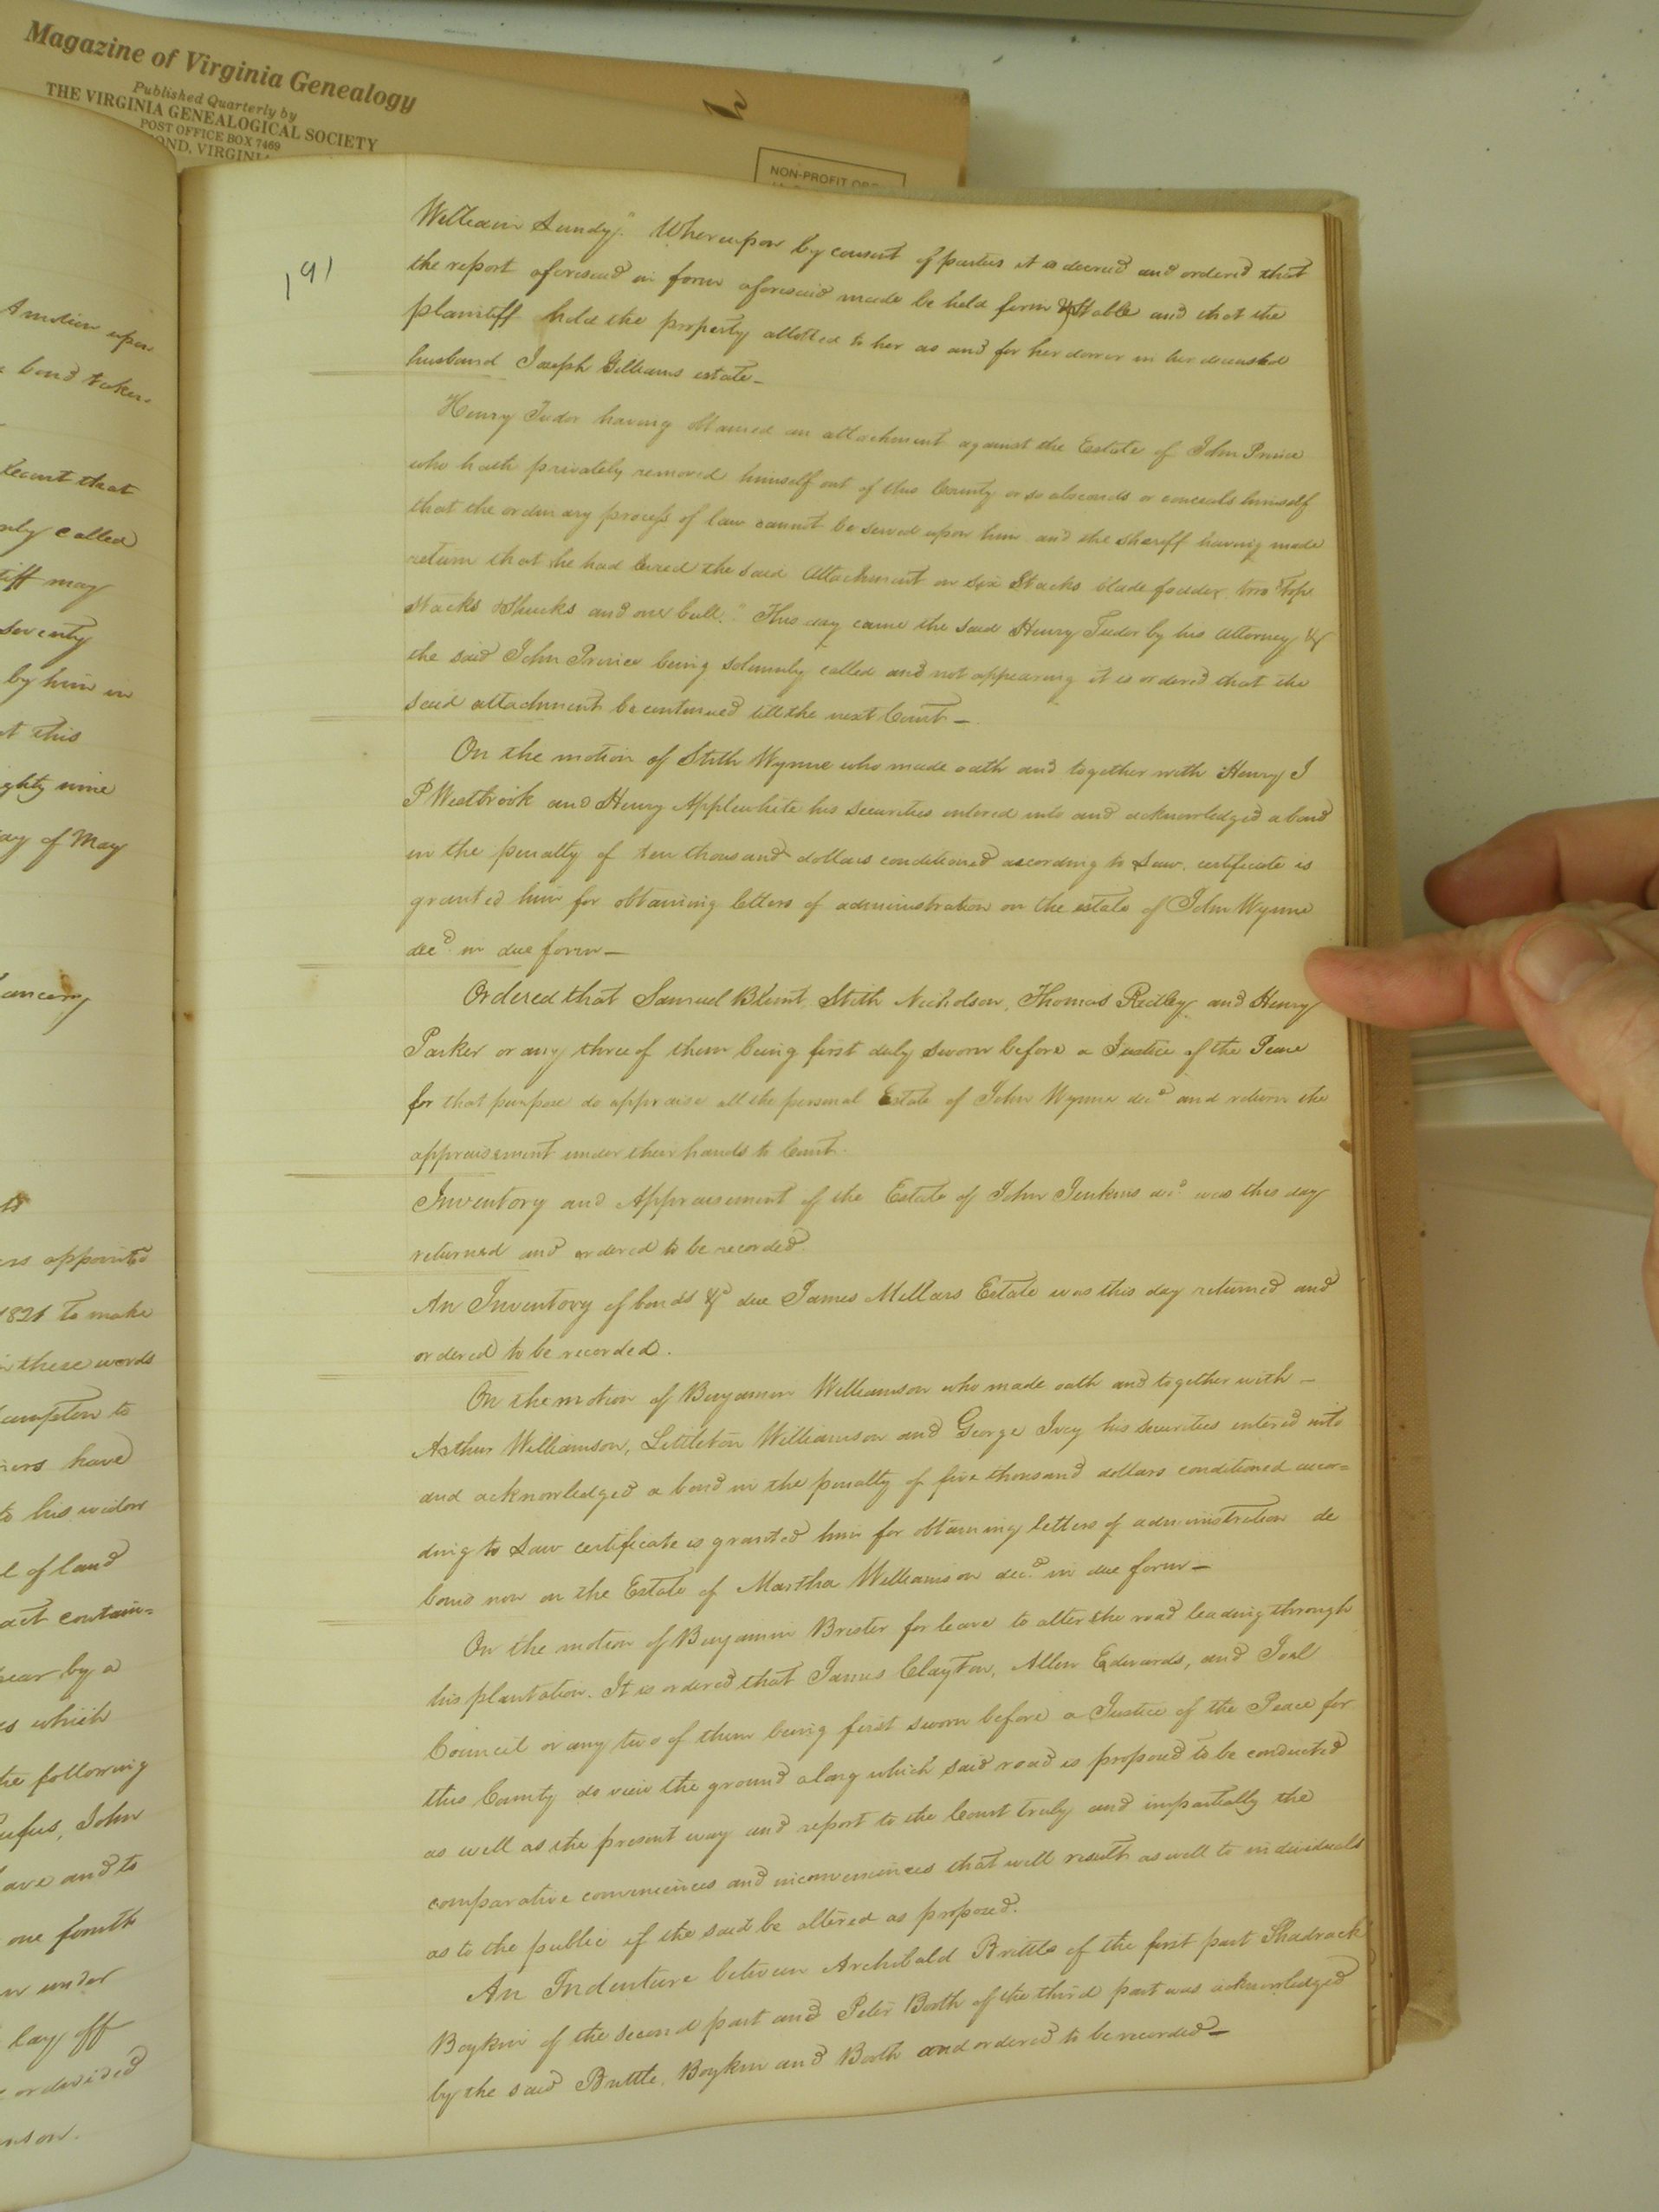 Magazine of Virginia Genealogy
Published Quarterly by
THE VIRGINIA GENEALOGICAL SOCIETY
POST OFFICE BOX 7469
OND, VIRGINIA
NON-PROFIT ORG
191
William Lundy." Whereupon by consent of parties it is decreed and ordered that
the report aforesaid in form aforesaid made be held firm & Stable and that the
plaintiff hold the property allotted to her as and for her dower in her deceased
husband Joseph Gilliams estate—
Henry Tudor having obtained an attachment against the Estate of John Prince
who hath privately removed himself out of this County or so absconds or conceals himself
that the ordinary process of law cannot be served upon him and the Sheriff having made
return that he had levied the said Attachment on six Stacks blade fodder, two Top
Stacks & Shucks and one bull." This day came the said Henry Tudor by his attorney &
the said John Prince being solemnly called and not appearing it is ordered that the
said attachment be continued till the next Court—
On the motion of Stith Wynne who made oath and together with Henry J
P Westbrook and Henry Applewhite his securities entered into and acknowledged a bond
in the penalty of ten thousand dollars conditioned according to Law, certificate is
granted him for obtaining letters of administration on the estate of John Wynne
decd in due form—
Ordered that Samuel Blunt, Stith Nicholson, Thomas Ridley and Henry
Parker or any three of them being first duly sworn before a Justice of the Peace
for that purpose do appraise all the personal Estate of John Wynne decd and return the
appraisement under their hands to Court.
Inventory and Appraisement of the Estate of John Jenkins decd was this day
returned and ordered to be recorded.
An Inventory of bonds &c due James Millars Estate was this day returned and
ordered to be recorded.
On the motion of Benjamin Williamson who made oath and together with—
Arthur Williamson, Littleton Williamson and George Ivey his securities entered into
and acknowledged a bond in the penalty of five thousand dollars conditioned accor=
ding to Law certificate is granted him for obtaining letters of administration de
bonis non on the Estate of Martha Williamson decd in due form—
On the motion of Benjamin Brister for leave to alter the road leading through
his plantation. It is ordered that James Clayton, Allen Edwards, and Joel
Council or any two of them being first sworn before a Justice of the Peace for
this County do view the ground along which said road is proposed to be conducted
as well as the present way and report to the Court truly and impartially the
comparative conveniences and inconveniences that will result as well to individuals
as to the public if the said be altered as proposed.
An Indenture between Archibald Brittle of the first part Shadrack
Boykin of the second part and Peter Booth of the third part was acknowledged
by the said Brittle, Boykin and Booth and ordered to be recorded—
A motion upon
bond taken
Court that
called
tiff may
seventy
by him in
this
ghty nine
ay of May
ancery
appointed
1821 to make
these words
ampton to
have
to his widow
of land
act contain=
by a
which
the following
ufus, John
ave and to
one fourth
under
lay off
or divided
nson.